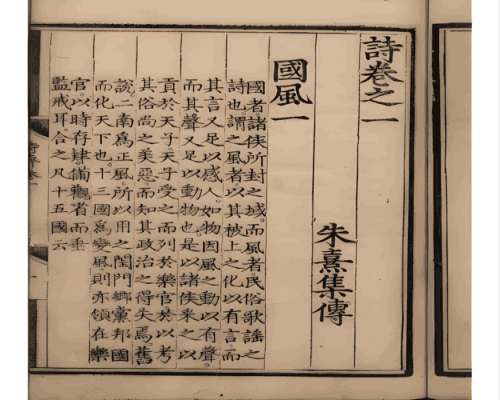 詩卷之一
朱熹集傳
國風一
國者諸侯所封之域而風者民俗歌謠之
詩也謂之風者以其被上之化以有言而
其言又足以感人如物因風之動以有聲
而其聲又足以動物也是以諸侯采之以
貢於天子天子受之而列於樂官於以考
其俗尚之美惡而知其政治之得失焉舊
說二南為正風所以用之閨門鄉黨邦國
而化天下也十三國為變風則亦領在樂
官以時存肄備觀省而垂
監戒耳合之凡十五國云